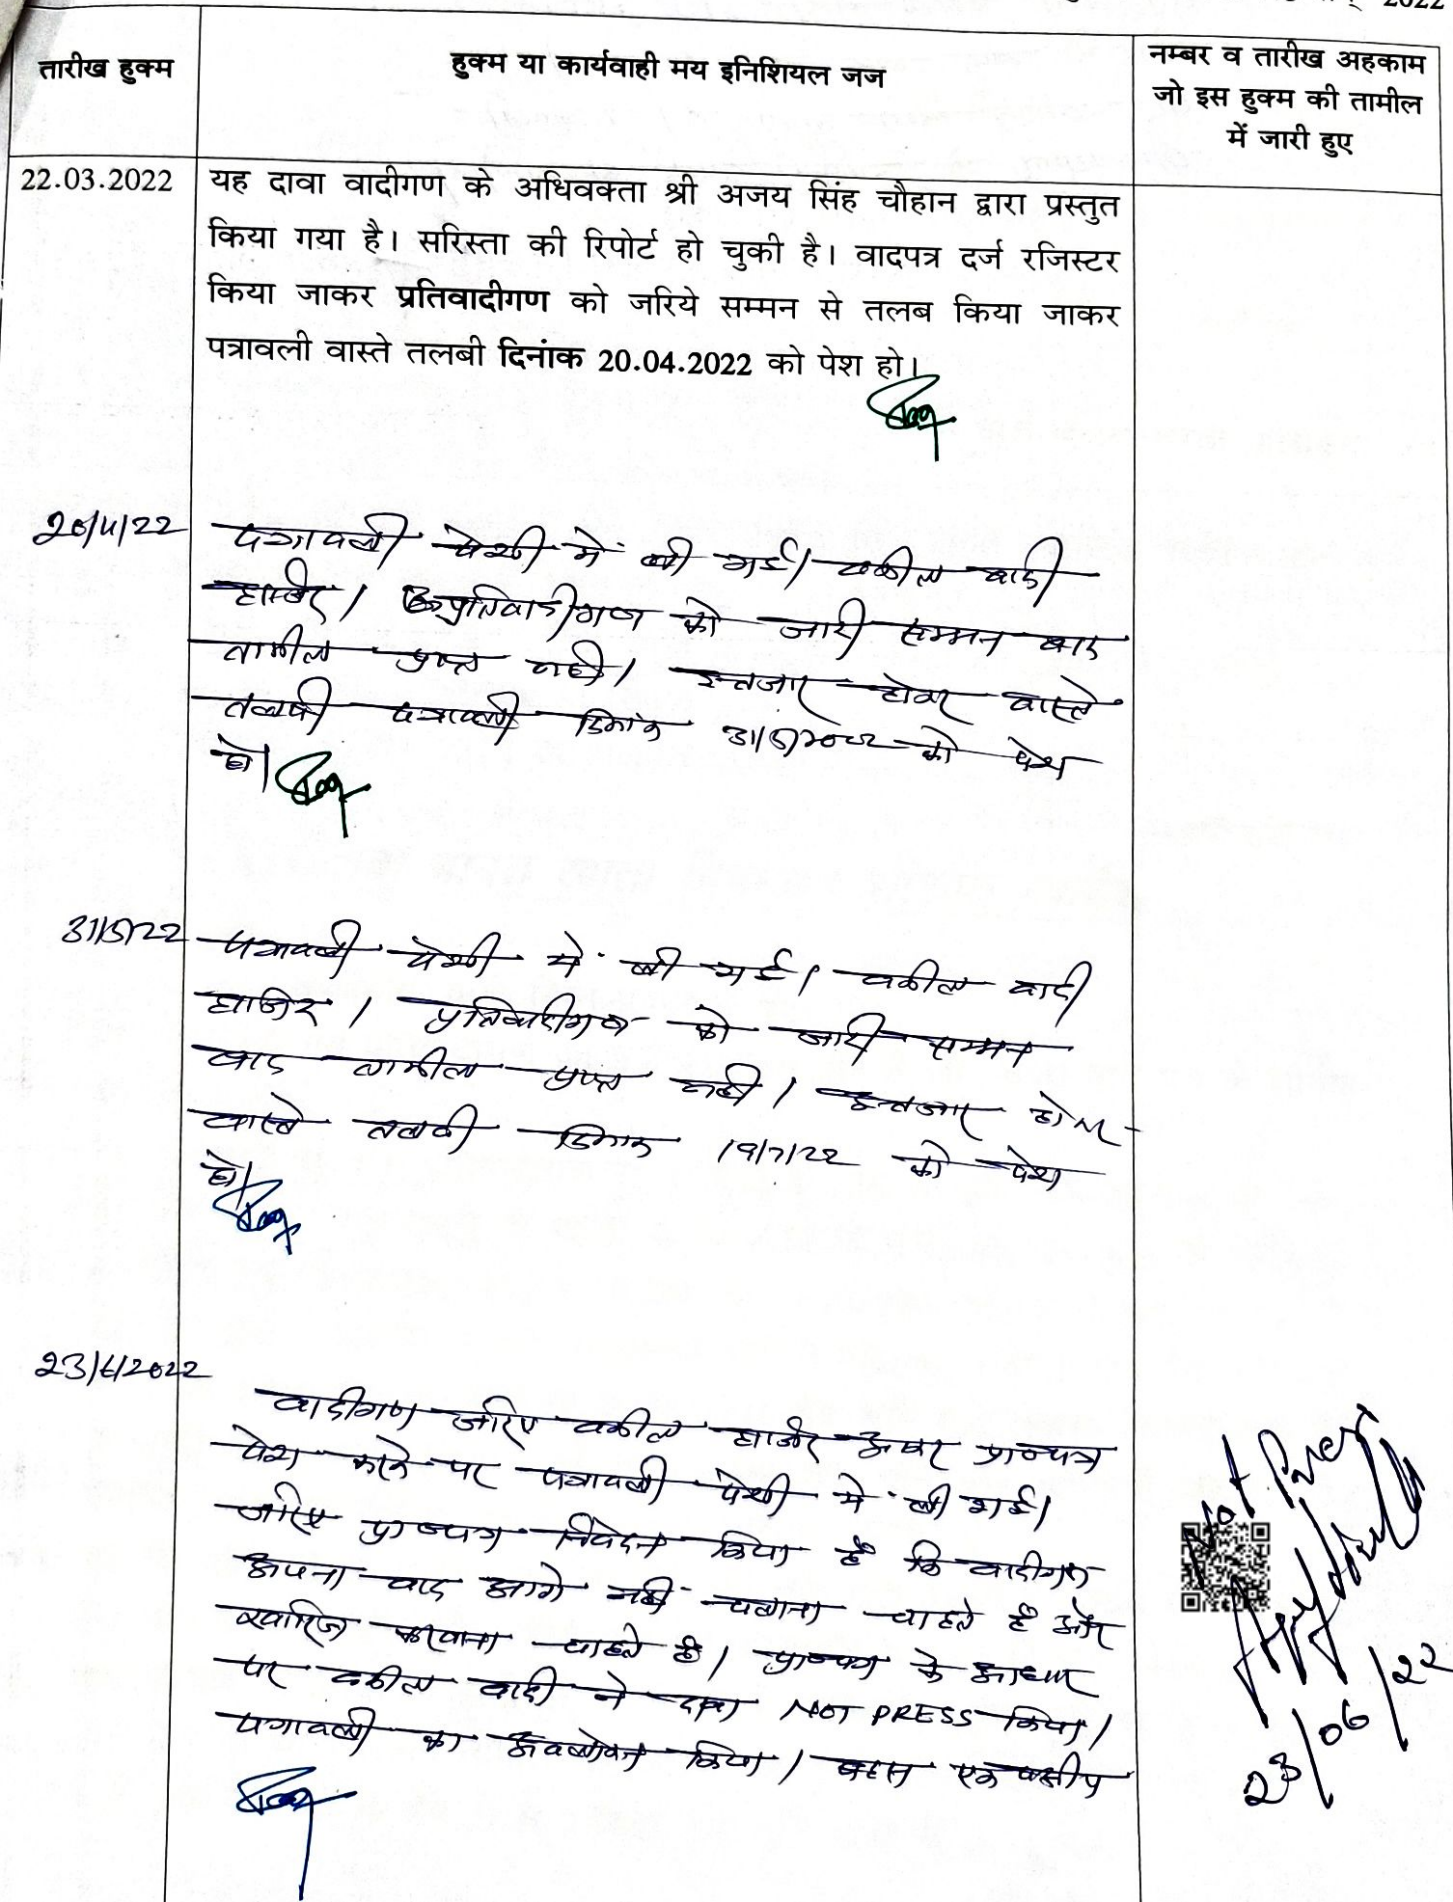 2022
तारीख हुक्म
हुक्म या कार्यवाही मय इनिशियल जज
नम्बर व तारीख अहकाम
जो इस हुक्म की तामील
में जारी हुए
22.03.2022
यह दावा वादीगण के अधिवक्ता श्री अजय सिंह चौहान द्वारा प्रस्तुत
किया गया है। सरिस्ता की रिपोर्ट हो चुकी है। वादपत्र दर्ज रजिस्टर
किया जाकर प्रतिवादीगण को जरिये सम्मन से तलब किया जाकर
पत्रावली वास्ते तलबी दिनांक 20.04.2022 को पेश हो।
20/4/22
पत्रावली पेशी में ली गई। वकील वादी
हाजिर। प्रतिवादीगण को जारी सम्मन बाद
तामील प्राप्त नही। इन्तजार होकर वास्ते
तलबी पत्रावली दिनांक 31/5/2022 को पेश
हो।
31/5/22
पत्रावली पेशी में ली गई। वकील वादी
हाजिर। प्रतिवादीगण को जारी सम्मन
बाद तामील प्राप्त नही। इन्तजार होकर
वास्ते तलबी दिनांक 19/7/22 को पेश
हो।
23/6/2022
वादीगण जरिए वकील हाजिर आकर प्रा०पत्र
पेश करने पर पत्रावली पेशी में ली गई।
जरिए प्रा०पत्र निवेदन किया है कि वादीगण
अपना वाद आगे नही चलाना चाहते है और
खारिज करवाना चाहते है। प्रा०पत्र के आधार
पर वकील वादी ने दावा NOT PRESS किया।
पत्रावली का अवलोकन किया। बहस एक पक्षीय
Not Press
23/06/22